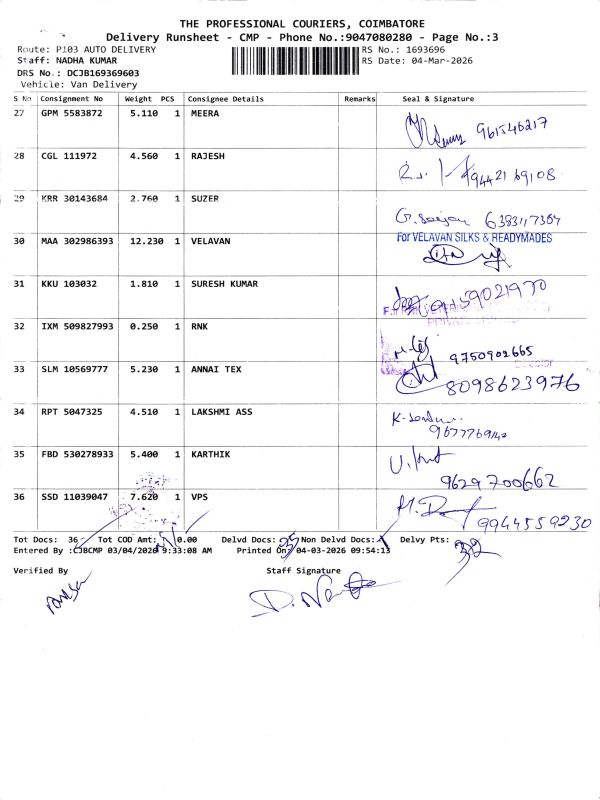 THE PROFESSIONAL COURIERS, COIMBATORE
Delivery Runsheet - CMP - Phone No.:9047080280 - Page No.:3
Route: P103 AUTO DELIVERY
RS No.: 1693696
Staff: NADHA KUMAR
RS Date: 04-Mar-2026
DRS No.: DCJB169369603
Vehicle: Van Delivery
S No Consignment No Weight PCS Consignee Details Remarks Seal & Signature
27 GPM 5583872 5.110 1 MEERA
961546217
28 CGL 111972 4.560 1 RAJESH
9442169108
29 KRR 30143684 2.760 1 SUZER
6383117367
30 MAA 302986393 12.230 1 VELAVAN
For VELAVAN SILKS & READYMADES
31 KKU 103032 1.810 1 SURESH KUMAR
32 IXM 509827993 0.250 1 RNK
9750902665
33 SLM 10569777 5.230 1 ANNAI TEX
8098623976
34 RPT 5047325 4.510 1 LAKSHMI ASS
35 FBD 530278933 5.400 1 KARTHIK
9629700662
36 SSD 11039047 7.620 1 VPS
9944559230
Tot Docs: 36 Tot COD Amt: 0.00 Delvd Docs: 35 Non Delvd Docs: 1 Delvy Pts: 32
Entered By :CJBCMP 03/04/2026 9:33:08 AM Printed On: 04-03-2026 09:54:13
Verified By
Staff Signature